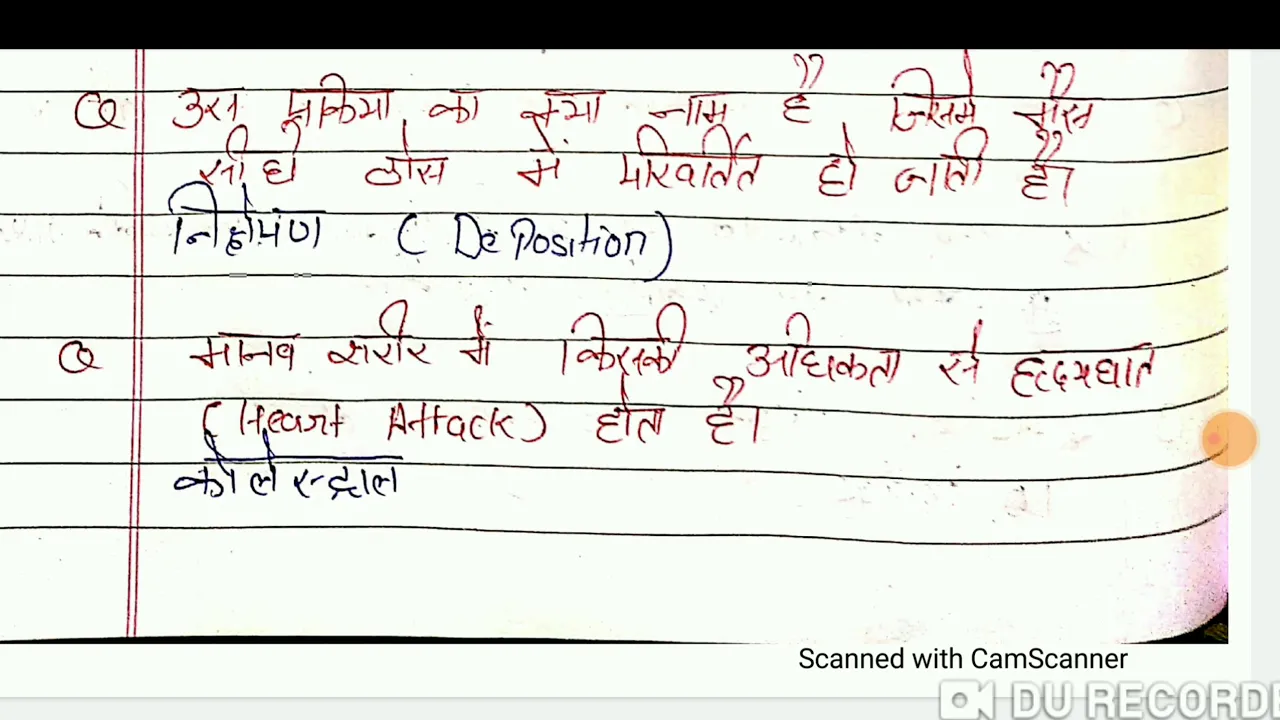 Q उस प्रकिया का क्या नाम है जिसमे गैस
सीधे ठोस में परिवर्तित हो जाती है।
निक्षेपण (Deposition)
Q मानव शरीर में किसकी अधिकता से हृदयघात
(Heart Attack) होता है।
कोलेस्ट्राल
Scanned with CamScanner
DU RECORDE